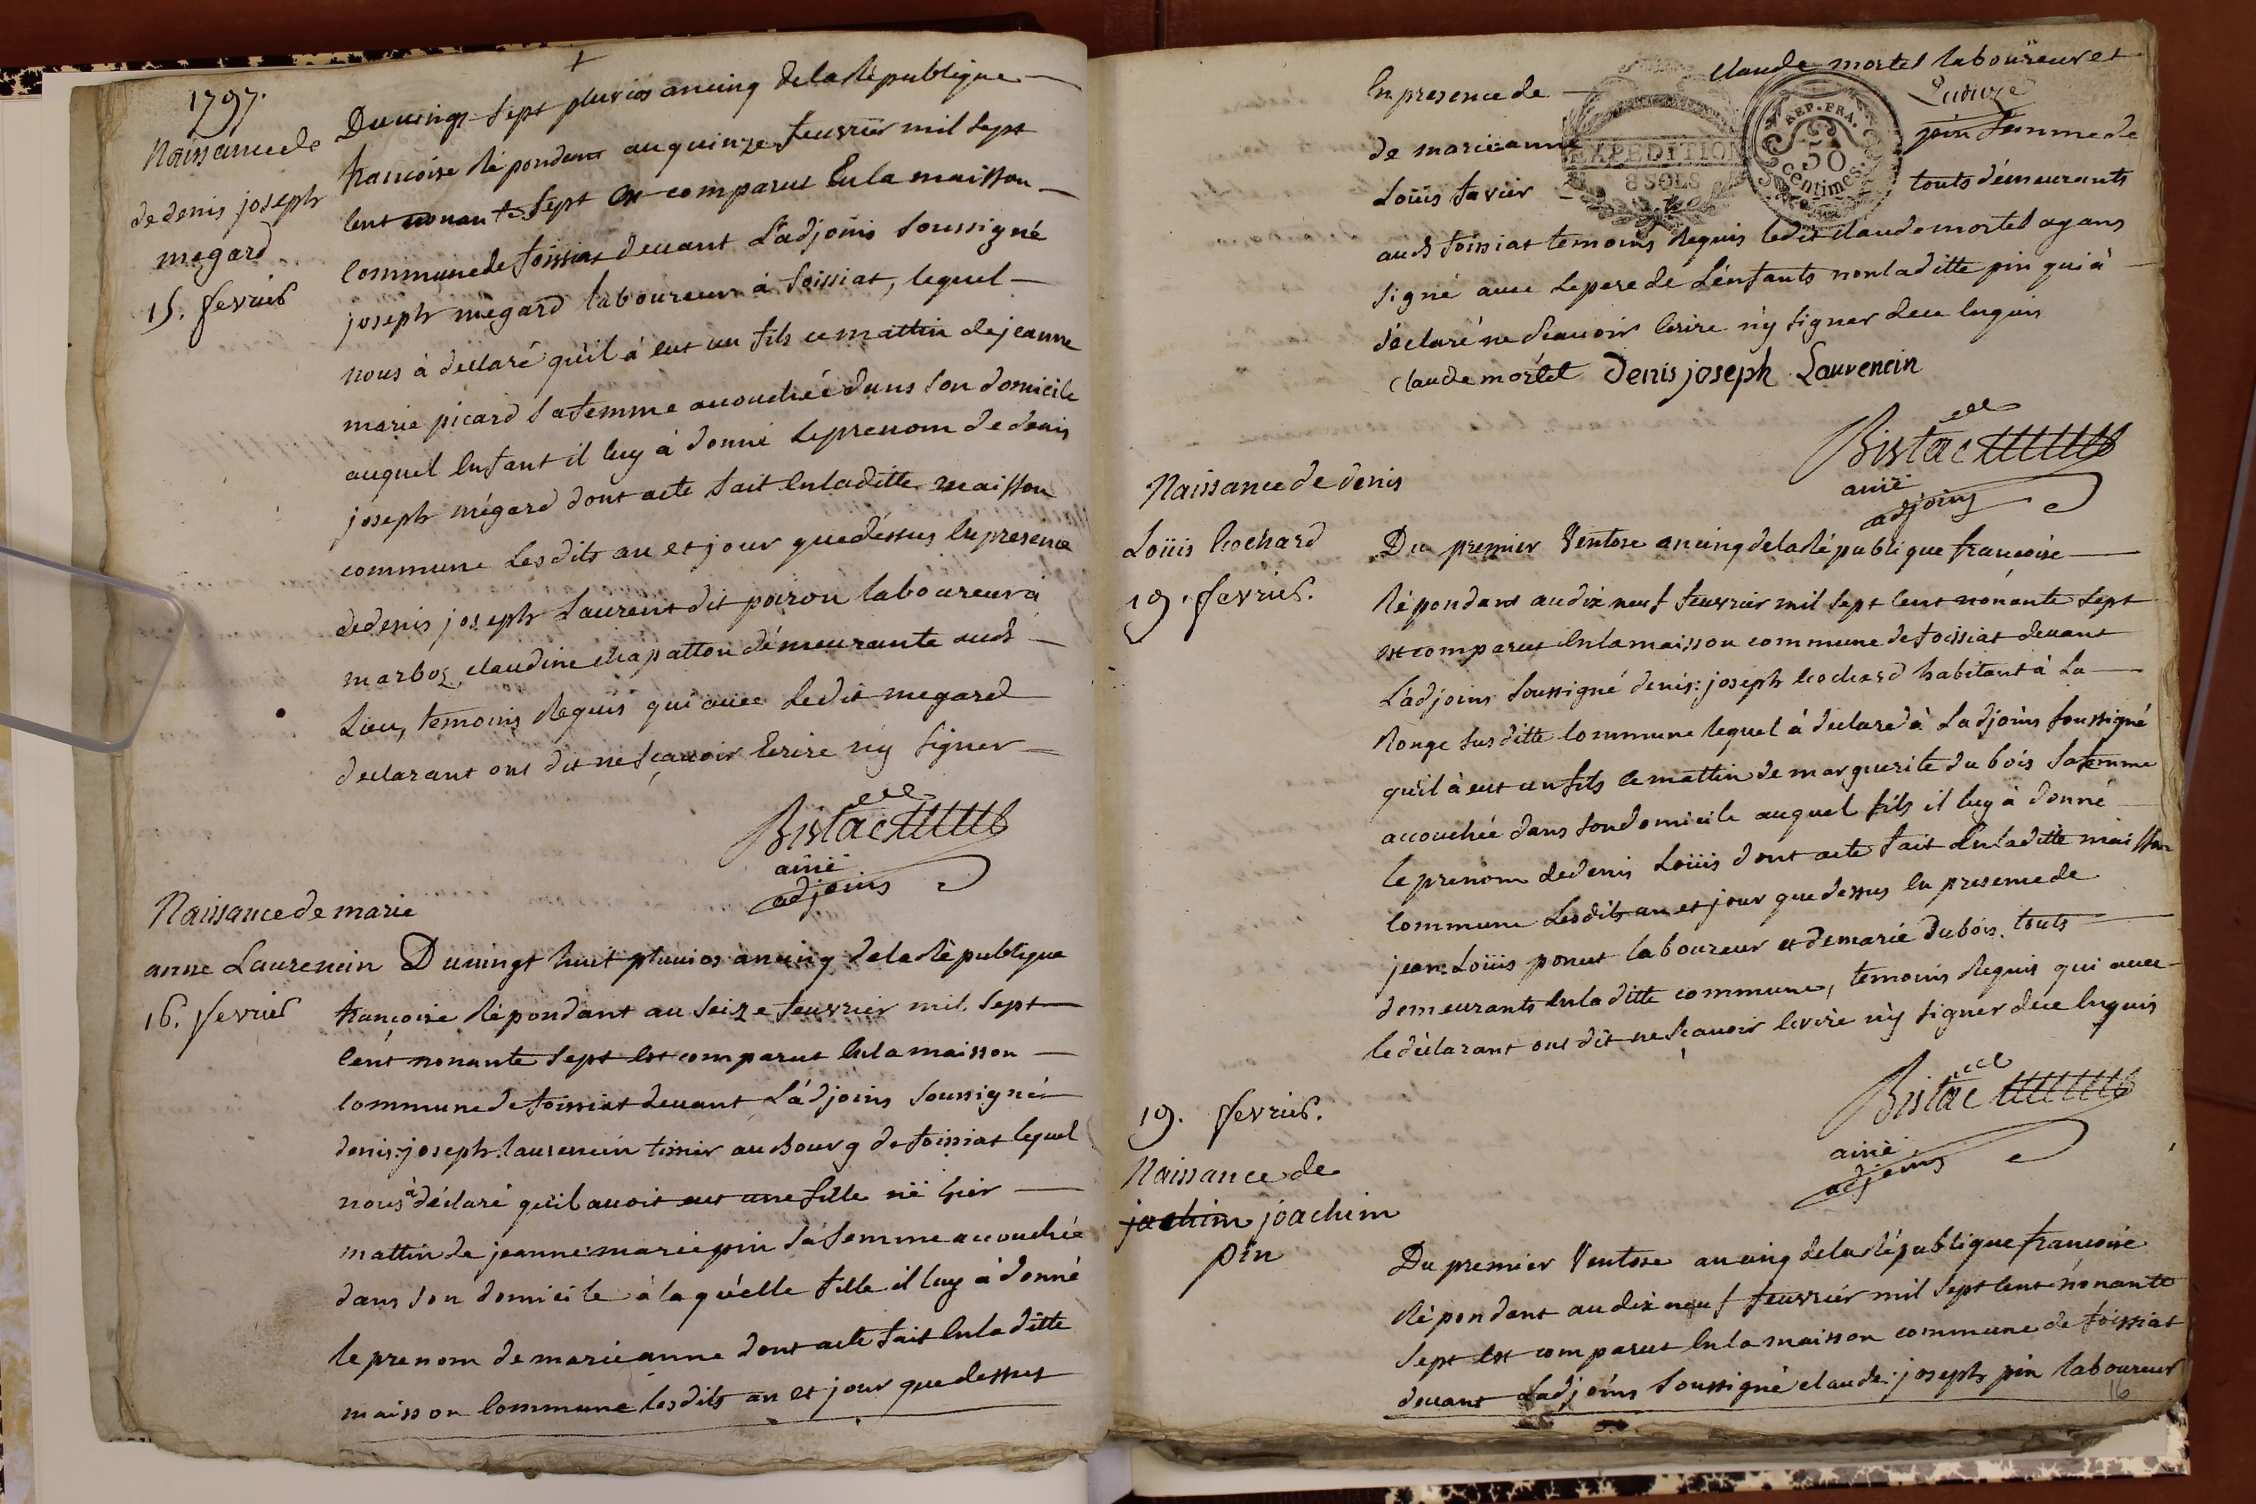 1797.
Naissance de
de denis joseph
megard
15. fevrier
Du vingt sept pluvios an cinq de la République
françoise Répondant au quinze feuvrier mil sept
cent nonante sept est comparut En la maisson
Commune de foissiat devant L'adjoins soussigné
joseph megard laboureur à foissiat, lequel
nous à déclaré qu'il à eut un fils ce mattin de jeanne
marie picard sa femme accouchée dans son domicile
auquel Enfant il luy à donné Le prenom de denis
joseph mégard dont acte fait En la ditte maisson
commune Les dits an et jour que dessus En presence
de denis joseph Laurent dit poiron laboureur à
marboz, claudine chapatton démeurante aud
Lieu, temoins Requis qui avec Le dit megard
declarant ont dit ne sçavoir Ecrire n'y signer
Bistac
ainé
adjoins
Naissance de marie
anne Laurencin
16. fevrier
Du vingt huit pluvios an cinq de la République
françoise Répondant au seize feuvrier mil sept
cent nonante sept est comparut En la maisson
Commune de foissiat devant L'adjoins soussigné
denis: joseph. laurencin au Bourg de foissiat lequel
nous à déclaré qu'il avoit eut une fille né hier
mattin de jeanne: marie pin sa femme accouchée
dans son domicile à la quélle fille il luy à donné
le prenom de marie anne dont acte fait En la ditte
maisson Commune les dits an et jour que dessus
En presence de claude mortel laboureur et
de marie: anne
pin femme de
Loüis favier touts démeurants
aud foissiat temoins Requis ledit claude mortel ayans
signé avec Le pere de L'enfants non la ditte pin qui à
déclaré ne sçavoir Ecrire n'y signer de ce Enquis
Claude mortel Denis joseph Laurencin
EXPEDITION
8 SOLS
REP. FRA.
50
centimes.
Bistac
ainé
adjoins
Naissance de denis
Loüis Cochard
19. fevrier.
Du premier Ventose an cinq de la République françoise
Répondant au dix neuf feuvrier mil sept cent nonante sept
est comparut En la maisson commune de foissiat devant
L'adjoins soussigné denis: joseph Cochard habitant à La
Ronge sus ditte Commune lequel à déclaré à L'adjoins soussigné
qu'il à eut un fils ce mattin de marguerite du bois sa femme
accouchée dans son domicile auquel fils il luy à donné
le prenom de denis Loüis dont acte fait En la ditte maisson
Commune Les dits an et jour que dessus En presence de
jean: Loüis ponut laboureur et de marie Dubois. touts
demeurants En la ditte commune, temoins Requis qui avec
le déclarant ont dit ne sçavoir Ecrire n'y signer de ce Enquis
Bistac
ainé
adjoins
19. fevrier.
Naissance de
jachim joachim
pin
Du premier Ventose an cinq de la République françoise
Répondant au dix neuf feuvrier mil sept cent nonante
sept est comparut En la maisson commune de foissiat
devant L'adjoins soussigné claude: joseph pin laboureur
16